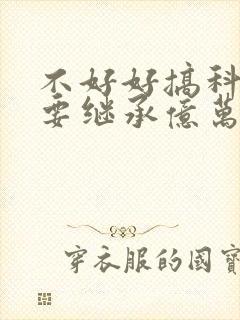 不好好搞科
要继承億萬
穿衣服的國寶